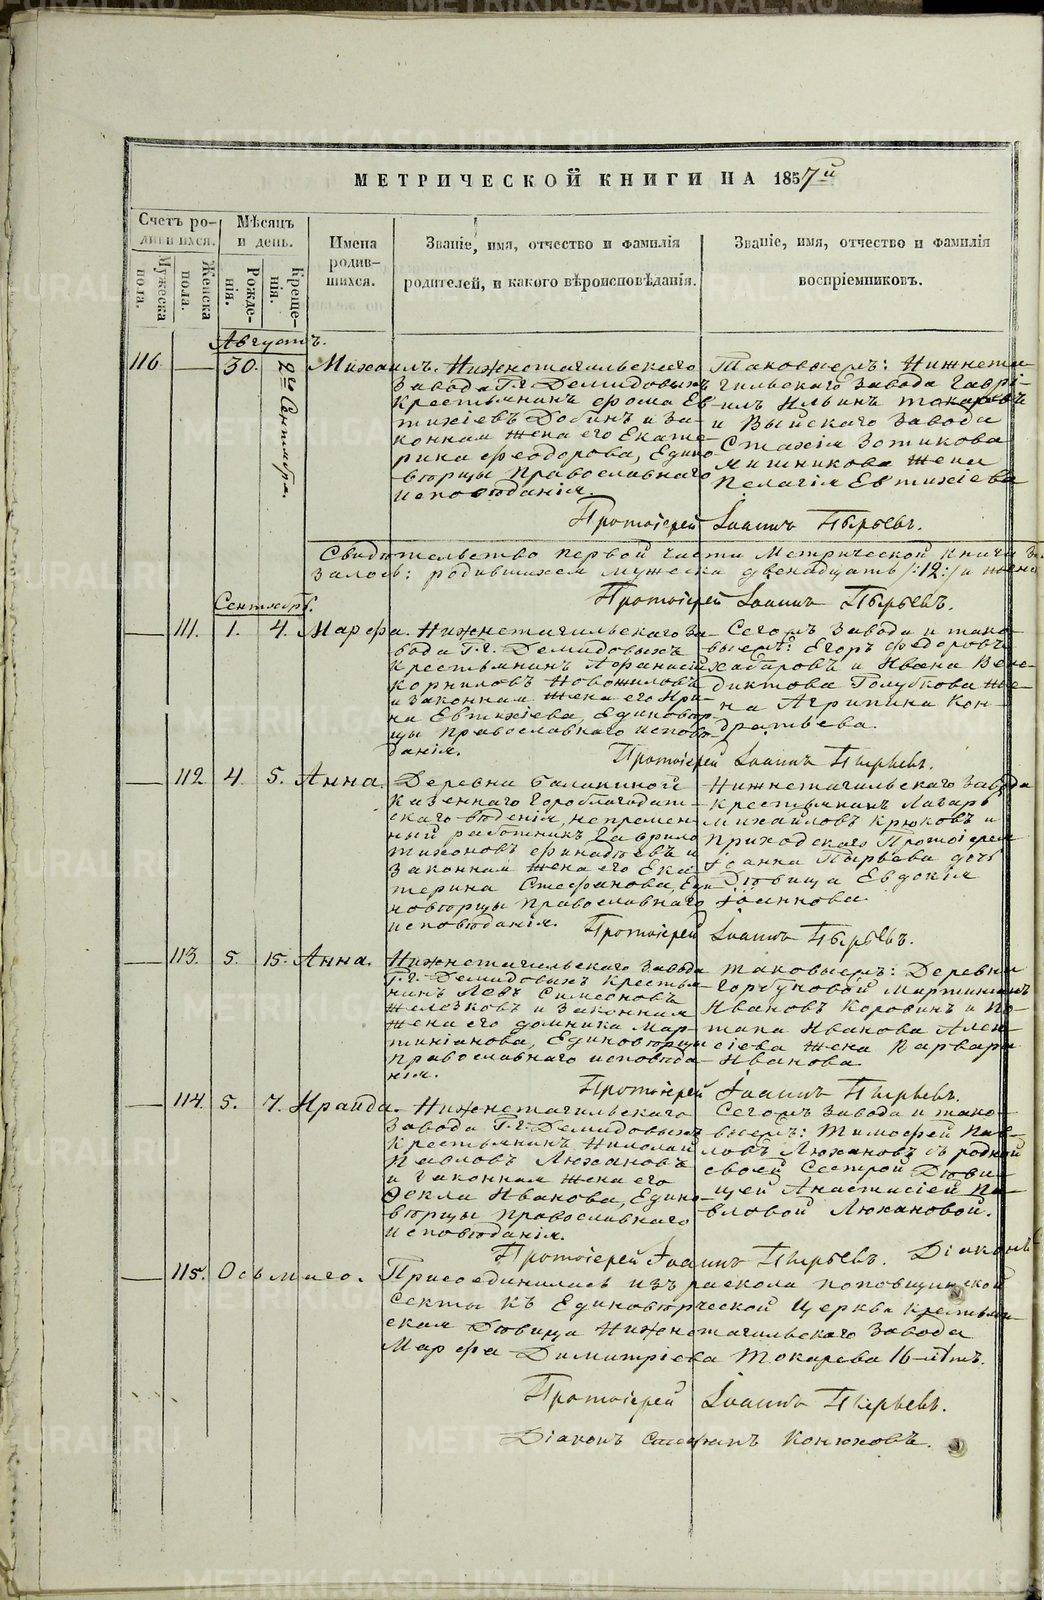 МЕТРИЧЕСКОЙ КНИГИ НА 1857й
Счетъ ро-
дившихся.
Мѣсяцъ
и день.
Имена
родив-
шихся.
Званіе, имя, отчество и фамилія
родителей, и какого вѣроисповѣданія.
Званіе, имя, отчество и фамилія
воспріемниковъ.
Мужеска
пола.
Женска
пола.
Рожде-
нія.
Креще-
нія.
Августъ.
116 — 30. 2го Сентября. Михаилъ.
Нижнетагильскаго
Завода Г.г. Демидовыхъ
Крестьянинъ Фома Ев-
тихіевъ и за-
конная жена его Екате-
рина Феодорова, Едино-
вѣрцы Православнаго
исповѣданія.
Таковыемъ: Нижнета-
гильскаго Завода Гаврі-
илъ Ильинъ Токаревъ
и Выйскаго Завода
Зотикова
Мишникова жена
Пелагія Евтихіева
Протоіерей Іоаннъ Пырьевъ.
Свидѣтельство первой части Метрической Книги
залось: родившихся мужеска двенадцать /:12:/ и
Протоіерей Іоаннъ Пырьевъ.
Сентябрь.
— 111. 1. 4. Марфа.
Нижнетагильскаго За-
вода Г.г. Демидовыхъ
Крестьянинъ Афанасій
Корниловъ Новожиловъ
и законная жена его Ири-
на Евтихіева, Единовѣр-
цы Православнаго исповѣ-
данія.
Сегожъ Завода и тако-
выемъ: Егоръ Федоровъ
Хабаровъ и Ивана Вене-
диктова Голубкова же-
на Агрипина Кон-
дратьева.
Протоіерей Іоаннъ Пырьевъ.
— 112 4 5. Анна.
Деревни Балакиной
Казеннаго Гороблагодат-
скаго вѣденія, непремен-
ный работникъ Гаврило
Тихоновъ Финадѣевъ и
законная жена его Ека-
терина Стефанова, Еди-
новѣрцы Православнаго
исповѣданія.
Нижнетагильскаго Завода
Крестьянинъ Лазарь
Михайловъ Крюковъ и
Приходскаго Протоіерея
Іоанна Пырьева дочь
Дѣвица Евдокія
Іоаннова.
Протоіерей Іоаннъ Пырьевъ.
— 113. 5. 15. Анна.
Нижнетагильскаго Завода
Г.г. Демидовыхъ Крестья-
нинъ Левъ Симеоновъ
Желѣзковъ и законная
жена его Домника Мар-
тиніанова, Единовѣрцы
Православнаго исповѣда-
нія.
Таковыемъ: Деревни
Горбуновой Мартиніанъ
Ивановъ Коровинъ и По-
тапа Иванова Алек-
сіева жена Варвара
Иванова
Протоіерей Іоаннъ Пырьевъ.
— 114. 5. 7. Ираида.
Нижнетагильскаго
Завода Г.г. Демидовыхъ
Крестьянинъ Николай
Павловъ Люхановъ
и законная жена его
Фекла Иванова, Едино-
вѣрцы Православнаго
исповѣданія.
Сегожъ Завода и тако-
выемъ: Тимофей Пав-
ловъ Люхановъ съ родной
своей Сестрой Дѣви-
цей Анастасіей Па-
вловой Люхановой.
Протоіерей Іоаннъ Пырьевъ. Діаконъ
— 115. Осьмаго.
Присоединилась изъ раскола поповщинской
Секты къ Единовѣрческой Церкви Крестьян-
ская Дѣвица Нижнетагильскаго Завода
Марфа Димитріева Токарева 16-лѣтъ.
Протоіерей Іоаннъ Пырьевъ.
Діаконъ Стефанъ Конюховъ.
METRIKI.GASO-URAL.RU